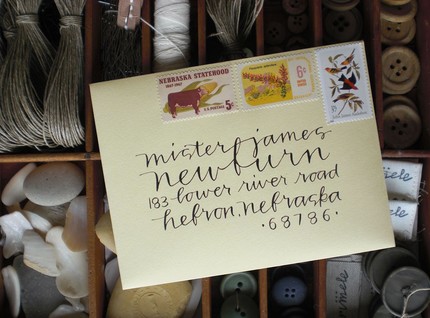 NEBRASKA STATEHOOD
1867-1967
U.S. POSTAGE 5¢
6¢
mister james
newburn
183 lower river road
hebron, nebraska
·68786·